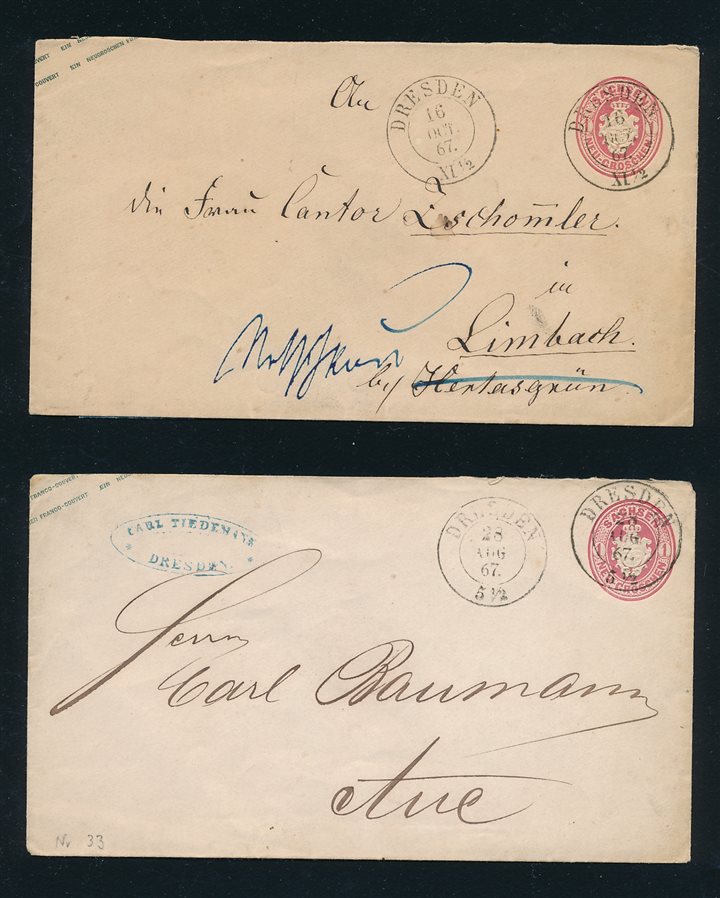 COUVERT EIN NEUGROSCHEN
COUVERT EIN NEUGROSCHEN
An
DRESDEN
16
OCT.
67.
XI ½
DRESDEN
16
OCT.
67.
XI ½
SACHSEN
1 NEU-GROSCHEN 1
die Frau Cantor Zschommler.
in
Limbach.
bei Herlasgrün.
FRANCO-COUVERT EIN
FRANCO-COUVERT EIN NEUGROSCHEN
CARL TIEDEMANN
DRESDEN.
DRESDEN
28
AUG
67.
5 ½
DRESDEN
28
AUG
67.
5 ½
SACHSEN
1 NEU-GROSCHEN 1
Herrn
Carl Baumann
Aue
Nr 33